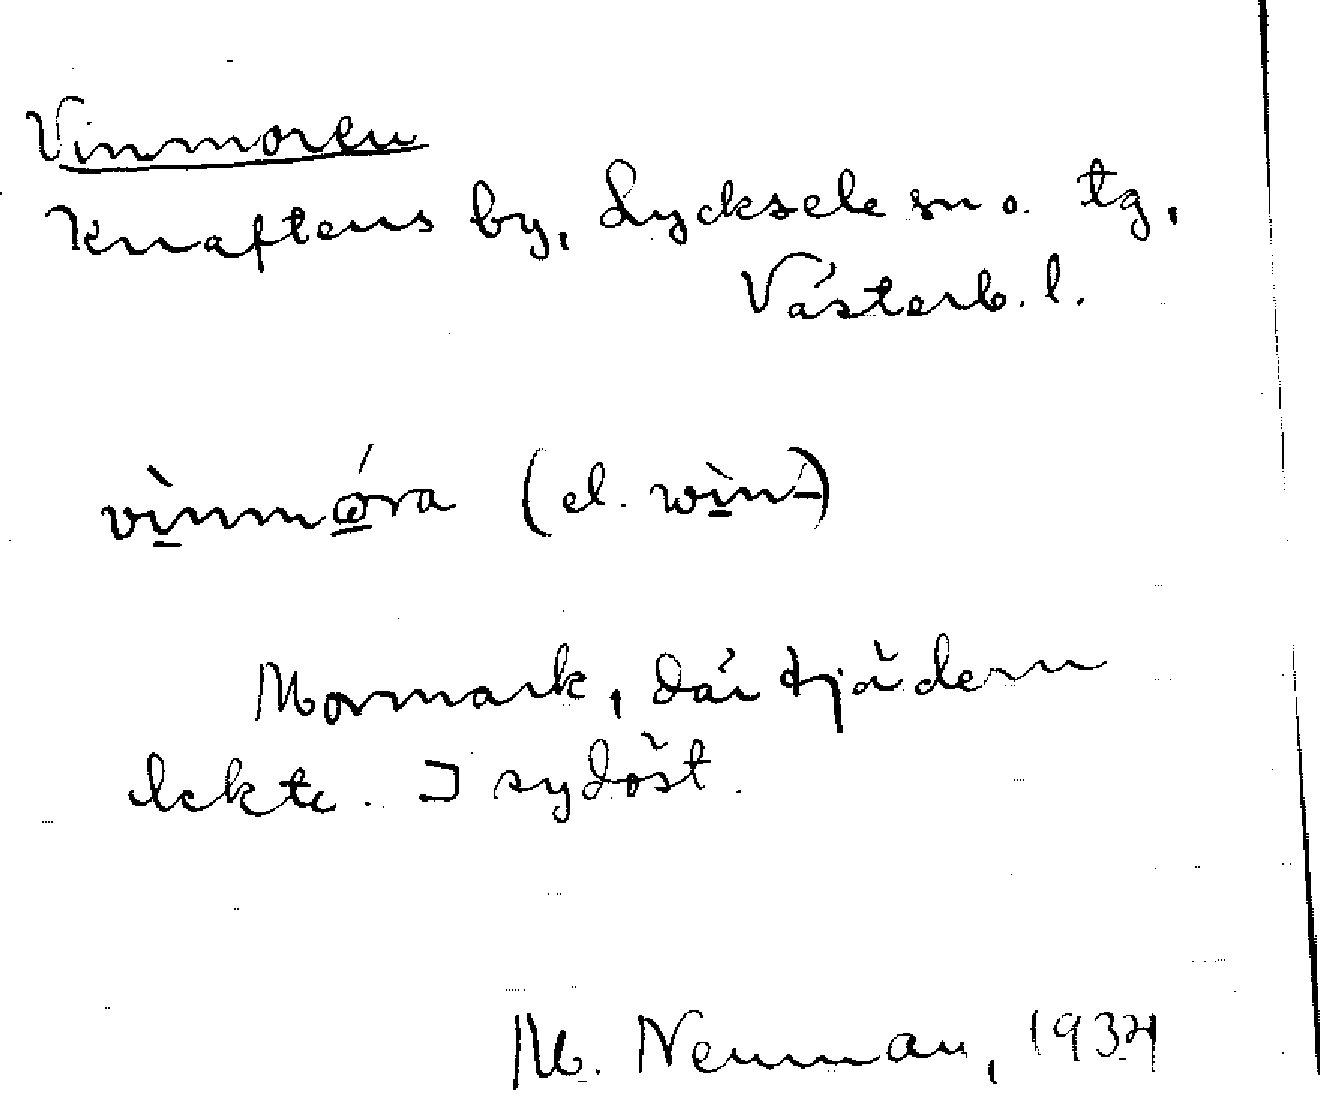 Vinmoren
Knaftens by, Lycksele sn o. tg,
Västerb. l.
vìnmǿra (el. wìn-)
Mormark, där tjädern
lekte. I sydöst.
M. Neuman, 1934